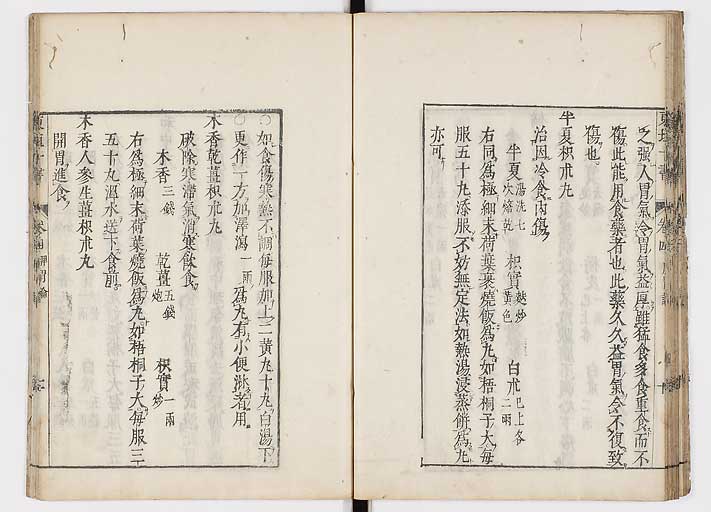 之強人胃氣令胃氣益厚雖猛食多食重食而不
傷此能用食藥者也此藥久久益胃氣令不復致
傷也
半夏枳朮丸
治因冷食內傷
半夏湯洗七次焙乾 枳實麩炒黃色 白朮已上各二兩
右同為極細末荷葉裹燒飯為丸如梧桐子大每
服五十丸添服不妨無定法如熱湯浸蒸餅為丸
亦可
○如食傷寒熱不調每服加上二黃丸十丸白湯下
○更作一方加澤瀉一兩為丸有小便淋者用
木香乾薑枳朮丸
破除寒滯氣消寒飲食
木香三錢 乾薑五錢炮 枳實一兩炒
右為極細末荷葉燒飯為丸如梧桐子大每服三
五十丸溫水送下食前
木香人參生薑枳朮丸
開胃進食